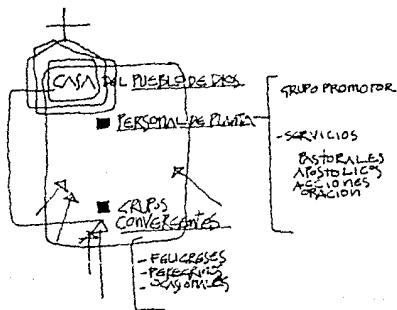 CASA DEL PUEBLO DE DIOS
PERSONAL DE PLANTA
GRUPO PROMOTOR
- SERVICIOS
PASTORALES
APOSTOLICOS
ACCIONES
ORACION
GRUPOS
CONVERGANTES
- FELIGRESES
- PEREGRINOS
- OCASIONALES